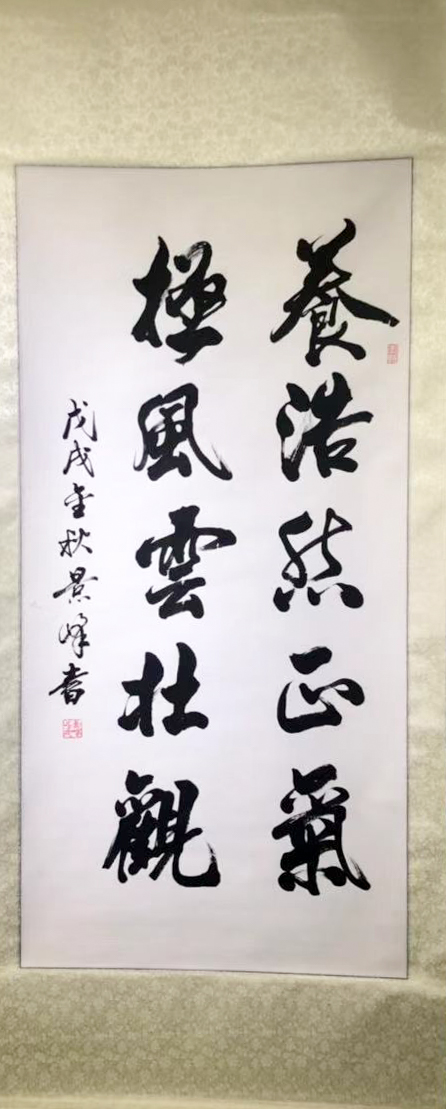 養浩然正氣
極風雲壯觀
戊戌金秋景峰書